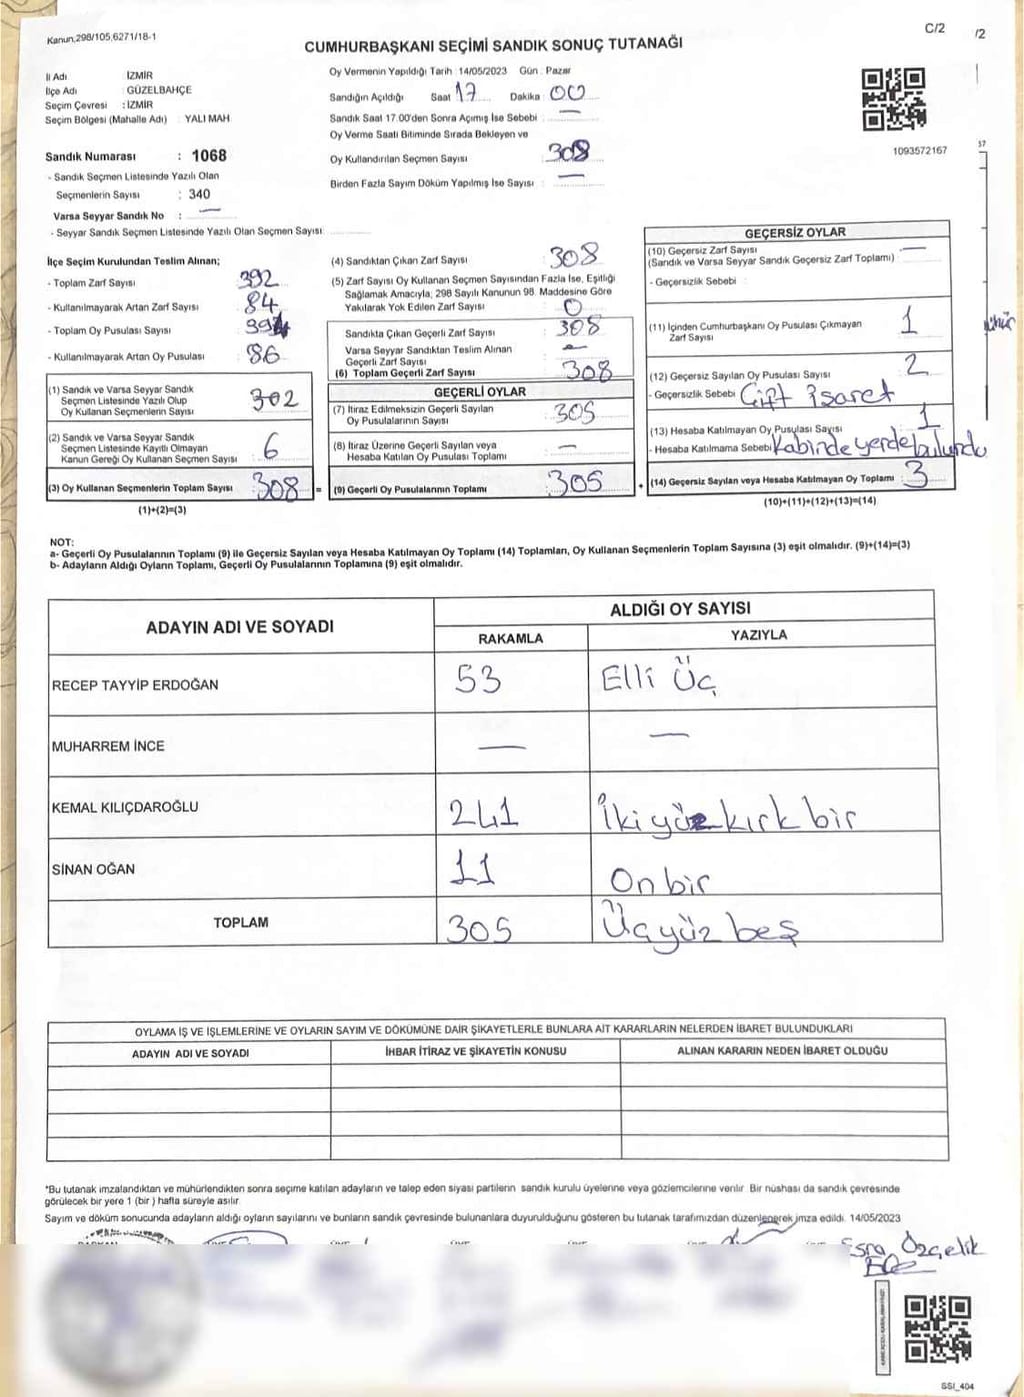 Kanun,298/105,6271/18-1
C/2
/2
CUMHURBAŞKANI SEÇİMİ SANDIK SONUÇ TUTANAĞI
İl Adı İZMİR
İlçe Adı : GÜZELBAHÇE
Seçim Çevresi : İZMİR
Seçim Bölgesi (Mahalle Adı) YALI MAH
Sandık Numarası : 1068
- Sandık Seçmen Listesinde Yazılı Olan
Seçmenlerin Sayısı : 340
Varsa Seyyar Sandık No : —
- Seyyar Sandık Seçmen Listesinde Yazılı Olan Seçmen Sayısı:
Oy Vermenin Yapıldığı Tarih : 14/05/2023 Gün : Pazar
Sandığın Açıldığı Saat 17 Dakika : 00
Sandık Saat 17.00'den Sonra Açımış İse Sebebi : —
Oy Verme Saati Bitiminde Sırada Bekleyen ve
Oy Kullandırılan Seçmen Sayısı : 308
Birden Fazla Sayım Döküm Yapılmış İse Sayısı : —
1093572167
57
İlçe Seçim Kurulundan Teslim Alınan;
- Toplam Zarf Sayısı 392
- Kullanılmayarak Artan Zarf Sayısı : 84
- Toplam Oy Pusulası Sayısı 394
- Kullanılmayarak Artan Oy Pusulası : 86
(1) Sandık ve Varsa Seyyar Sandık
Seçmen Listesinde Yazılı Olup
Oy Kullanan Seçmenlerin Sayısı 302
(2) Sandık ve Varsa Seyyar Sandık
Seçmen Listesinde Kayıtlı Olmayan
Kanun Gereği Oy Kullanan Seçmen Sayısı 6
(3) Oy Kullanan Seçmenlerin Toplam Sayısı : 308 =
(1)+(2)=(3)
(4) Sandıktan Çıkan Zarf Sayısı : 308
(5) Zarf Sayısı Oy Kullanan Seçmen Sayısından Fazla İse, Eşitliği
Sağlamak Amacıyla; 298 Sayılı Kanunun 98. Maddesine Göre
Yakılarak Yok Edilen Zarf Sayısı : 0
Sandıkta Çıkan Geçerli Zarf Sayısı : 308
Varsa Seyyar Sandıktan Teslim Alınan
Geçerli Zarf Sayısı : —
(6) Toplam Geçerli Zarf Sayısı 308
GEÇERLİ OYLAR
(7) İtiraz Edilmeksizin Geçerli Sayılan
Oy Pusulalarının Sayısı : 305
(8) İtiraz Üzerine Geçerli Sayılan veya
Hesaba Katılan Oy Pusulası Toplamı : —
(9) Geçerli Oy Pusulalarının Toplamı : 305 +
GEÇERSİZ OYLAR
(10) Geçersiz Zarf Sayısı —
(Sandık ve Varsa Seyyar Sandık Geçersiz Zarf Toplamı) :
- Geçersizlik Sebebi :
(11) İçinden Cumhurbaşkanı Oy Pusulası Çıkmayan
Zarf Sayısı : 1
(12) Geçersiz Sayılan Oy Pusulası Sayısı 2
- Geçersizlik Sebebi Çift işaret
(13) Hesaba Katılmayan Oy Pusulası Sayısı 1
- Hesaba Katılmama Sebebi Kabinde yerde bulundu
(14) Geçersiz Sayılan veya Hesaba Katılmayan Oy Toplamı : 3
(10)+(11)+(12)+(13)=(14)
NOT:
a- Geçerli Oy Pusulalarının Toplamı (9) ile Geçersiz Sayılan veya Hesaba Katılmayan Oy Toplamı (14) Toplamları, Oy Kullanan Seçmenlerin Toplam Sayısına (3) eşit olmalıdır. (9)+(14)=(3)
b- Adayların Aldığı Oyların Toplamı, Geçerli Oy Pusulalarının Toplamına (9) eşit olmalıdır.
ADAYIN ADI VE SOYADI
ALDIĞI OY SAYISI
RAKAMLA YAZIYLA
RECEP TAYYİP ERDOĞAN 53 Elli Üç
MUHARREM İNCE — —
KEMAL KILIÇDAROĞLU 241 İki yüz kırk bir
SİNAN OĞAN 11 On bir
TOPLAM 305 Üç yüz beş
OYLAMA İŞ VE İŞLEMLERİNE VE OYLARIN SAYIM VE DÖKÜMÜNE DAİR ŞİKAYETLERLE BUNLARA AİT KARARLARIN NELERDEN İBARET BULUNDUKLARI
ADAYIN ADI VE SOYADI İHBAR İTİRAZ VE ŞİKAYETİN KONUSU ALINAN KARARIN NEDEN İBARET OLDUĞU
*Bu tutanak imzalandıktan ve mühürlendikten sonra seçime katılan adayların ve talep eden siyasi partilerin sandık kurulu üyelerine veya gözlemcilerine verilir. Bir nüshası da sandık çevresinde
görülecek bir yere 1 (bir ) hafta süreyle asılır.
Sayım ve döküm sonucunda adayların aldığı oyların sayılarını ve bunların sandık çevresinde bulunanlara duyurulduğunu gösteren bu tutanak tarafımızdan düzenlenerek imza edildi. 14/05/2023
Esra Özçelik
SSİ_404